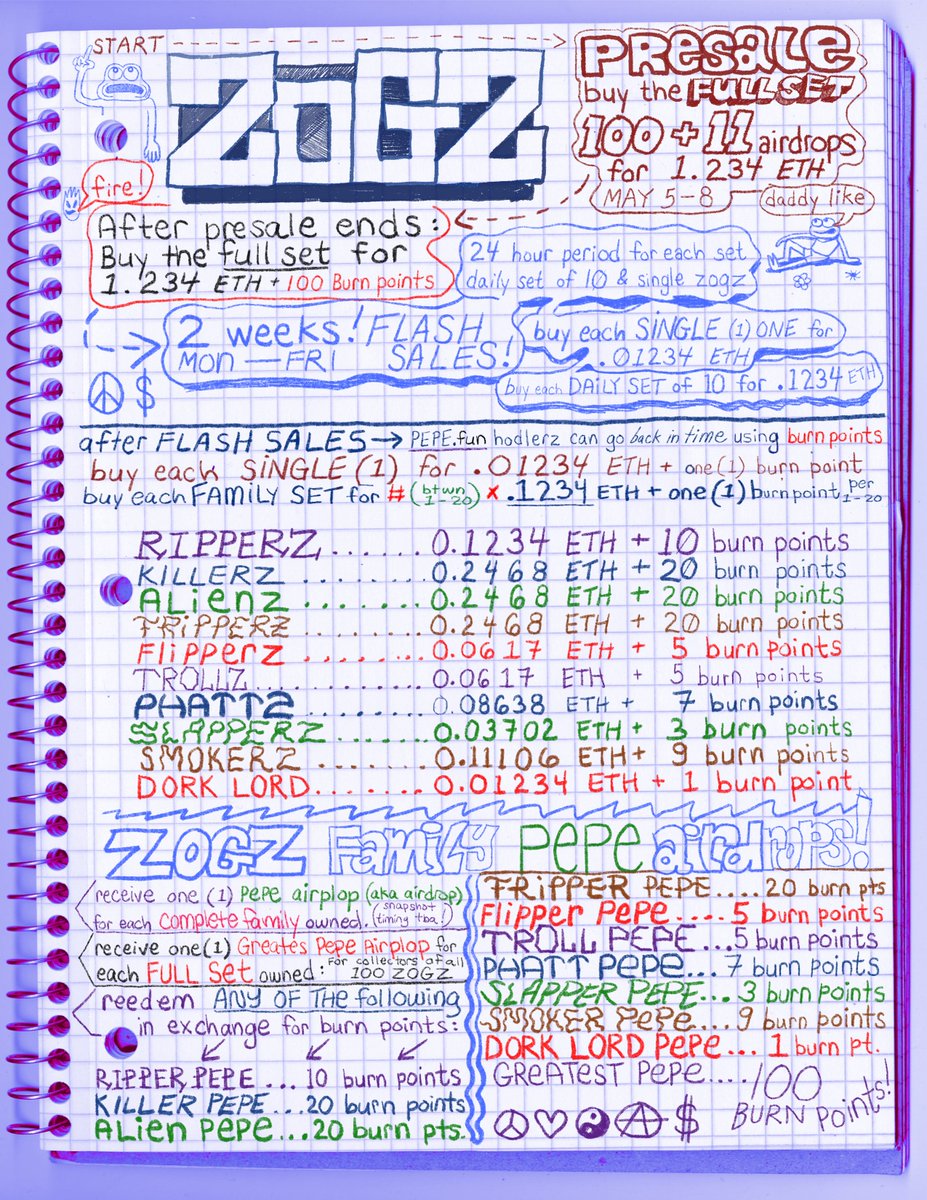 START
ZOGZ
PRESALE
buy the FULL SET
100 + 11 airdrops
for 1.234 ETH
MAY 5-8
fire!
daddy like
After presale ends:
Buy the full set for
1.234 ETH + 100 Burn points
24 hour period for each set
daily set of 10 & single zogz
2 weeks! FLASH
MON — FRI SALES!
buy each SINGLE (1) ONE for
.01234 ETH
buy each DAILY SET of 10 for .1234 ETH
$
after FLASH SALES → PEPE.fun hodlerz can go back in time using burn points
buy each SINGLE (1) for .01234 ETH + one (1) burn point
buy each FAMILY SET for # (btwn 1-20) x .1234 ETH + one (1) burn point per 1-20
RIPPERZ ...... 0.1234 ETH + 10 burn points
KILLERZ ........ 0.2468 ETH + 20 burn points
ALienz ........ 0.2468 ETH + 20 burn points
TRiPPERZ ....... 0.2468 ETH + 20 burn points
Flipperz ........ 0.0617 ETH + 5 burn points
TROLLZ ......... 0.0617 ETH + 5 burn points
PHATTZ ........ 0.08638 ETH + 7 burn points
SLAPPERZ ...... 0.03702 ETH + 3 burn points
SMOKERZ ....... 0.11106 ETH + 9 burn points
DORK LORD....... 0.01234 ETH + 1 burn point
ZOGZ Family PEPE airdrops!
receive one (1) Pepe airplop (aka airdrop)
for each complete family owned. (snapshot timing tba!)
receive one (1) Greates Pepe Airplop for
each FULL Set owned: For collectors of all 100 ZOGZ
reedem ANY OF THE following
in exchange for burn points:
RIPPER PEPE ... 10 burn points
KILLER PEPE ... 20 burn points
ALien PEPE...20 burn pts.
TRiPPER PEPE....20 burn pts
Flipper Pepe .... 5 burn points
TROLL PEPE ...5 burn points
PHATT PePe... 7 burn points
SLAPPER PEPE... 3 burn points
SMOKER PePe ... 9 burn points
DORK LORD PePe ... 1 burn pt.
GREATEST PEPE....100
BURN POINTS!
$